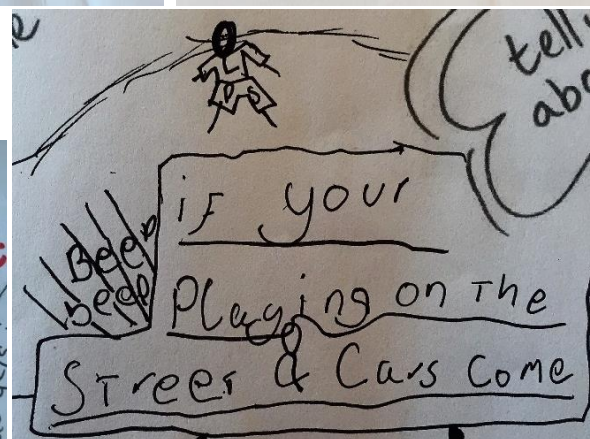 tell
abo
Beep
Beep
if your
Playing on The
STreet & Cars Come